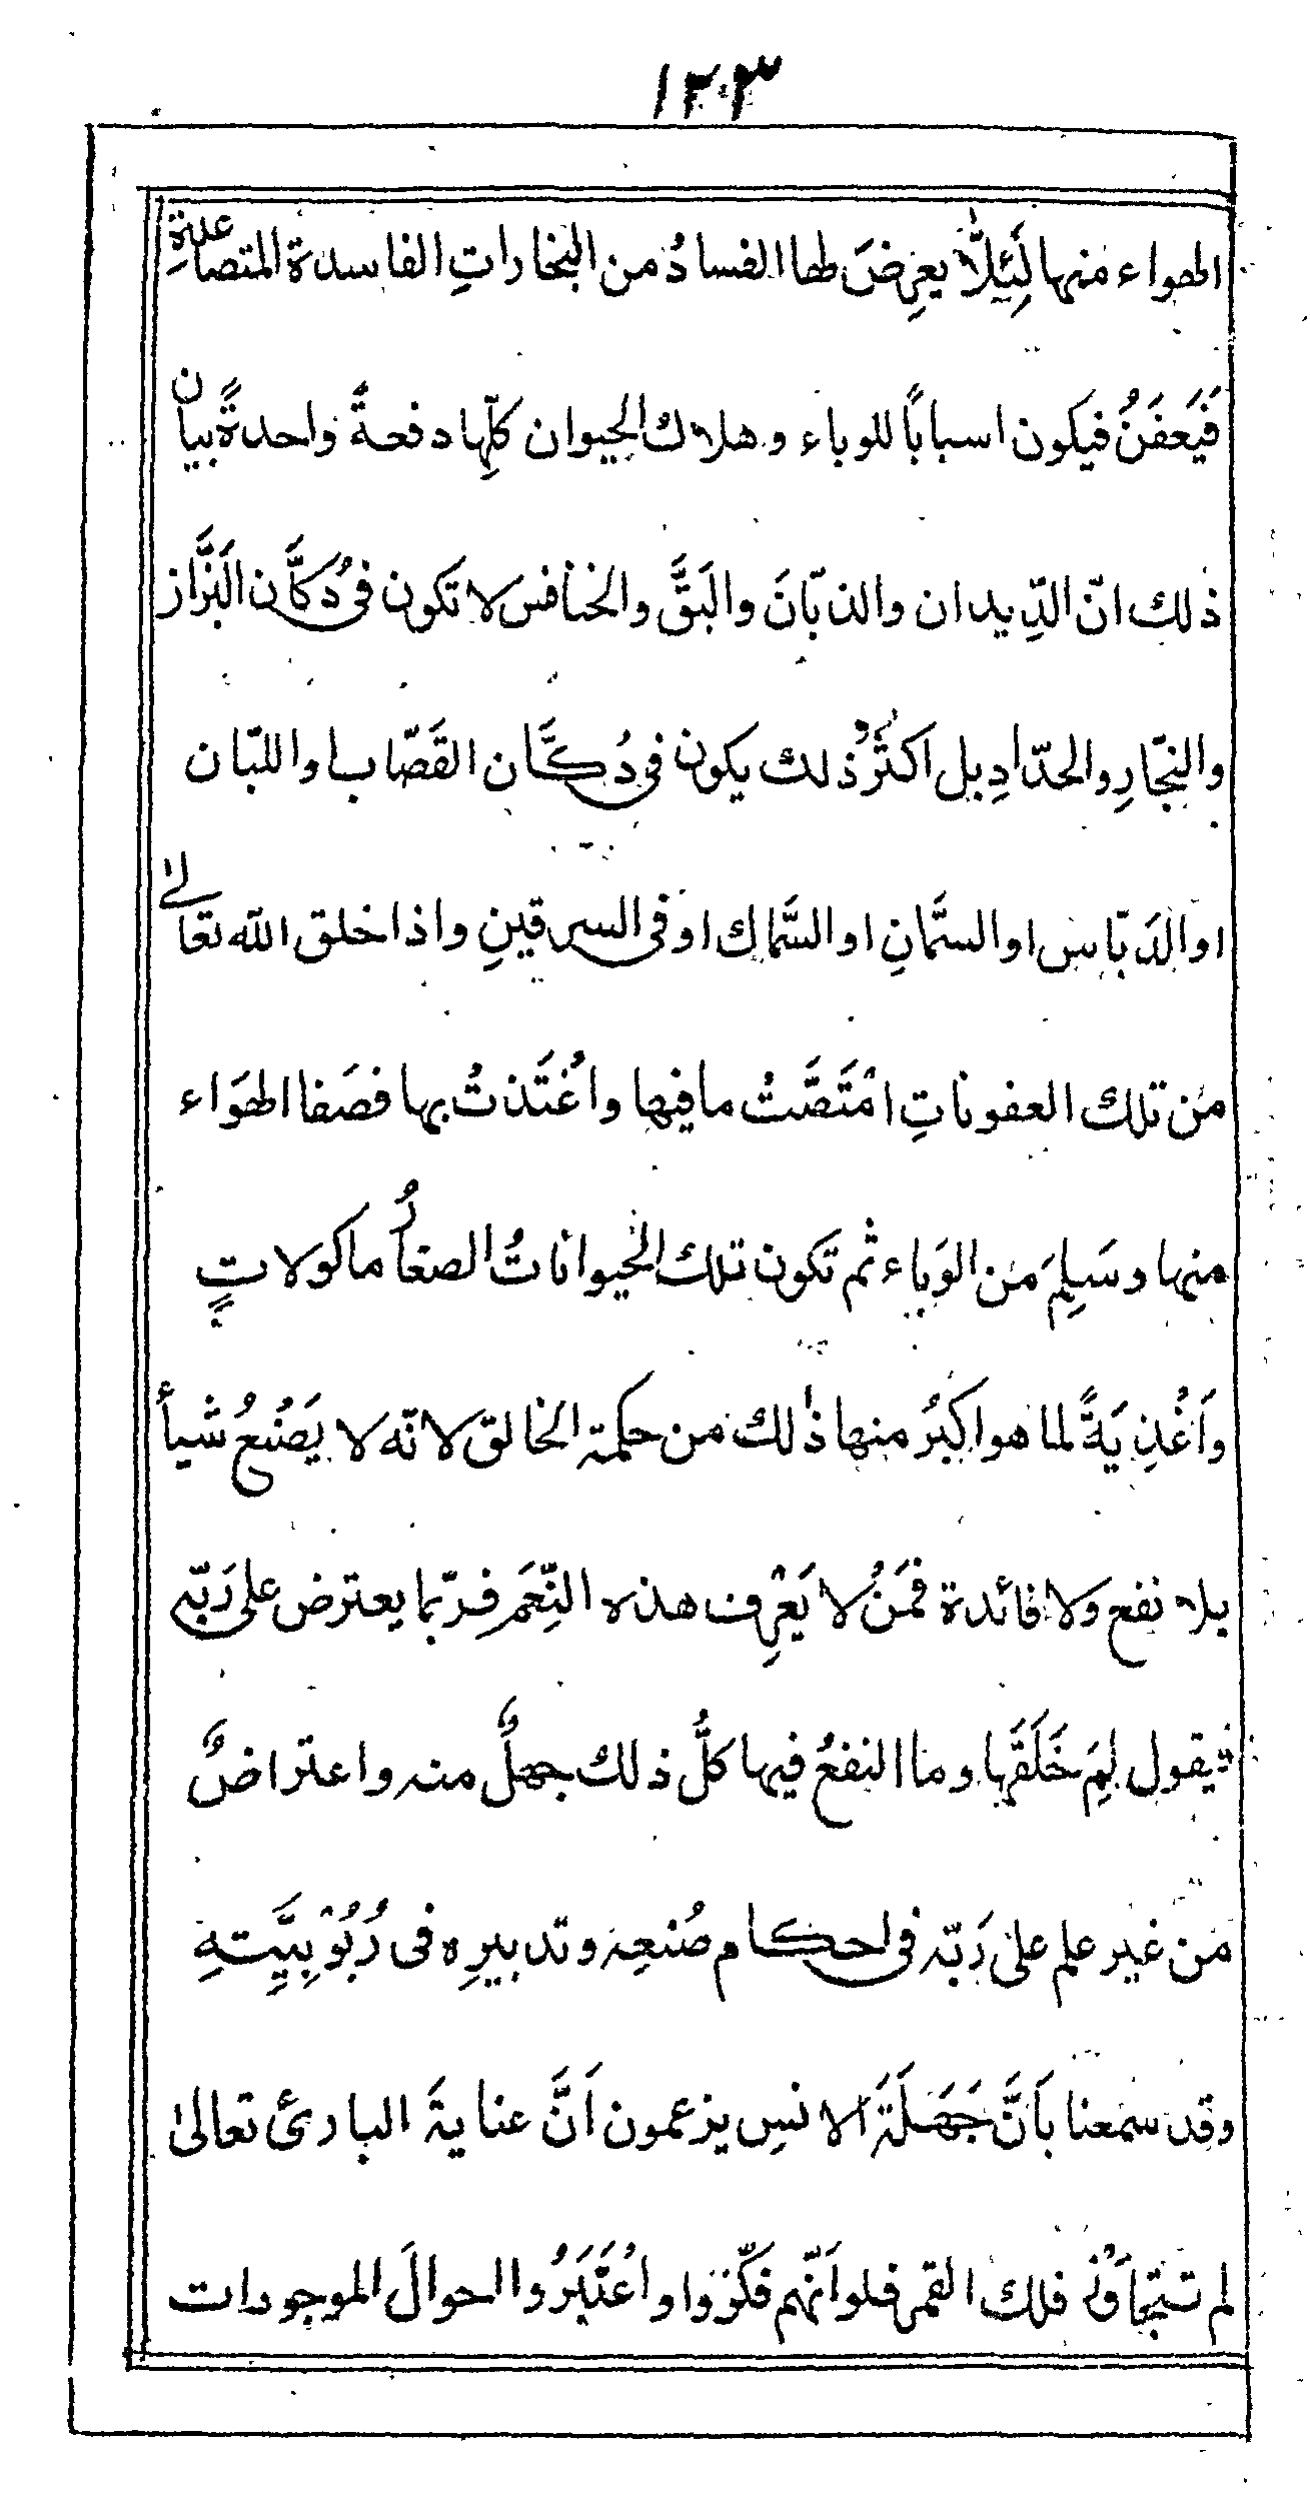 ١٢٠٣
الهواء منها لِئَلّا يعرِضَ لها الفسادُ من البخاراتِ الفاسدة المتصاعدةِ
فَيَعفَنُ فيكون اسبابًا للوباء وهلاك الحيوان كلِّها دفعةً واحدةً بيان
ذلك انّ الدِّيدان والذبّانَ والبَقَّ والخنافس لا تكون فى دُكَّان البَزَّاز
والنجّارِ والحدّادِ بل اكثَرُ ذلك يكون فى دُكَّان القَصّاب او اللبّان
او الدَبّاس او السمَّانِ او السَّماك او فى السرقينِ واذا خلق الله تعالى
من تلك العفوناتِ امْتَصَّتْ ما فيها واغْتَذتْ بها فصَفا الهَوَاء
منها وسَلِمَ من الوَباء ثم تكون تلك الحيواناتُ الصغارُ ماكولاتٍ
واَغْذِيَةً لما هو اكبَرُ منها ذٰلك من حكمة الخالق لانّه لا يَصْنَعُ شيأً
بلا نفع ولا فائدة فمَنْ لا يَعْرِف هذه النِّعَمَ فربّما يعترض على رَبّه
فيقول لِمَ خَلَقَها وما النفعُ فيها كلُّ ذلك جهلٌ منه واعتراضٌ
من غير علم على رَبّه فى احكام صُنعِه وتدبيرِه فى رُبُوْبِيَّتِهِ
وقد سمعنا باَنَّ جَهَلَةَ الانسِ يزعمون اَنَّ عناية البارئ تعالىٰ
لم تتجاوَزْ فلك القمر فلو اَنّهم فكّروا واعْتَبَرُوا احوالَ الموجودات